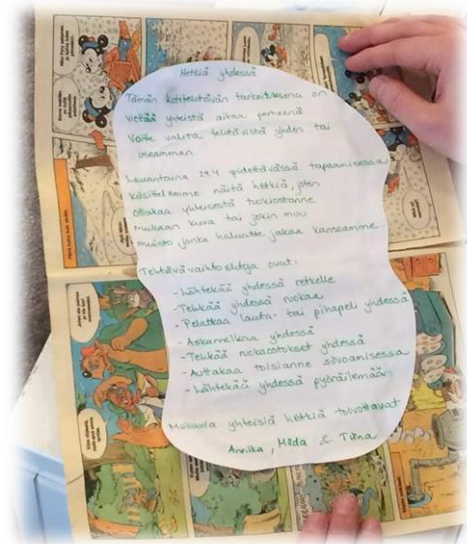 Hetkiä yhdessä
Tämän kotitehtävän tarkoituksena on
viettää yhteistä aikaa perheenä.
Voitte valita tehtävistä yhden tai
useamman.
Lauantaina 29.4 pidettävässä tapaamisessa
käsittelemme näitä hetkiä, joten
ottakaa yhteisestä tuokiostanne
mukaan kuva tai jokin muu
muisto jonka haluatte jakaa kanssamme.
Tehtävävaihtoehtoja ovat:
- Lähtekää yhdessä retkelle
- Tehkää yhdessä ruokaa
- Pelatkaa lauta- tai pihapeli yhdessä
- Askarrelkaa yhdessä
- Tehkää ruokaostokset yhdessä
- Auttakaa toisianne siivoamisessa
- Lähtekää yhdessä pyöräilemään
Mukavia yhteisiä hetkiä toivottavat
Annika, Milda & Tiina